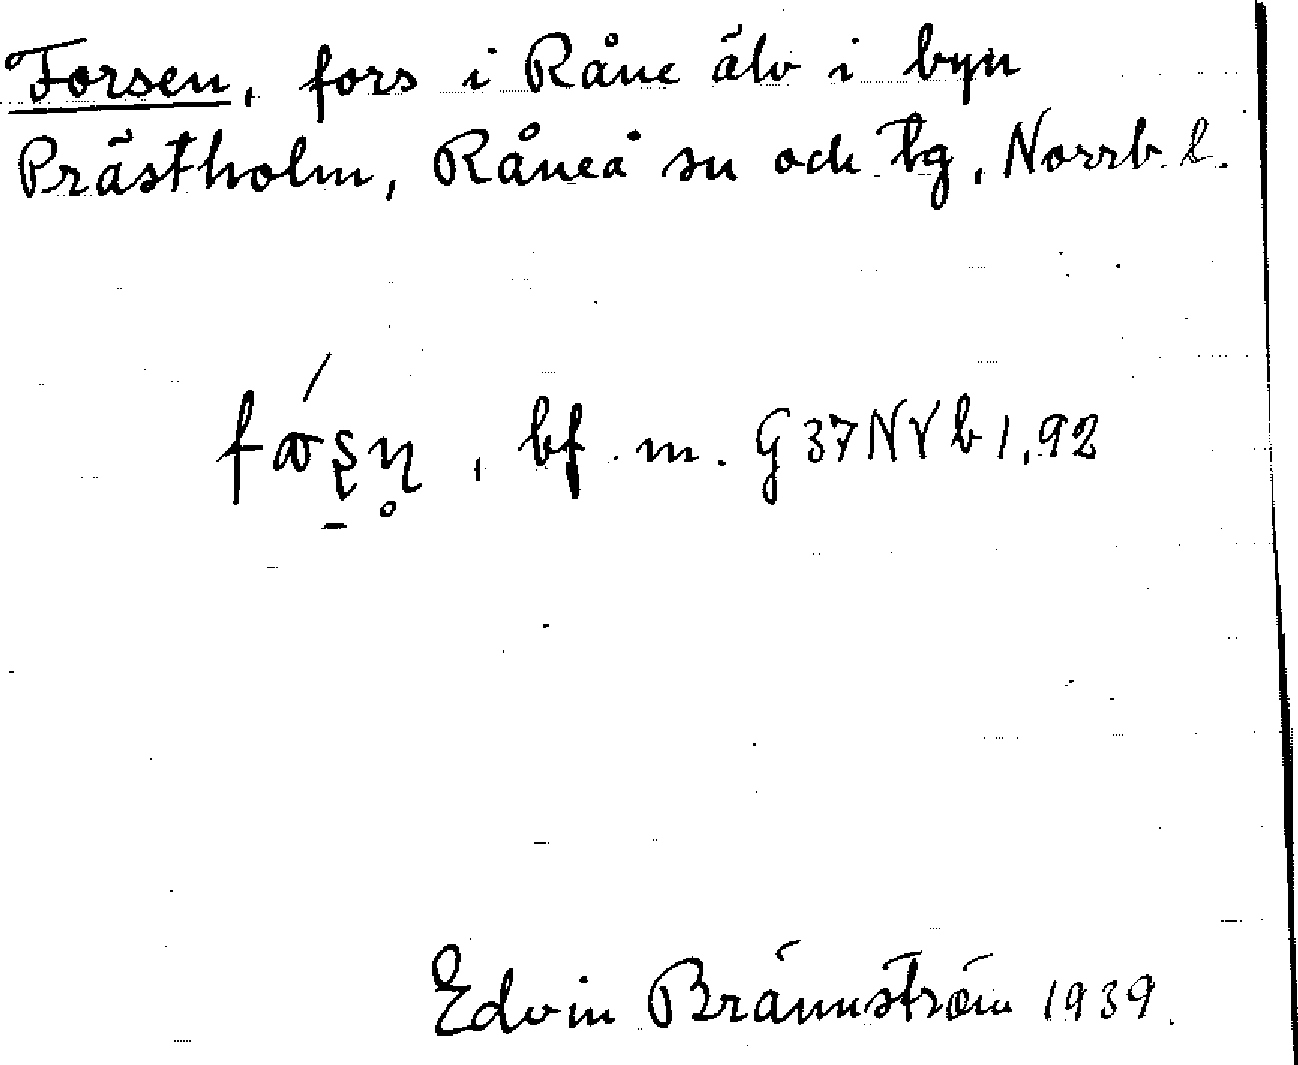 Forsen, fors i Råne älv i byn
Prästholm, Råneå sn och tg, Norrb. l.
bf. m. G37NVb1,92
Edvin Brännström 1939.